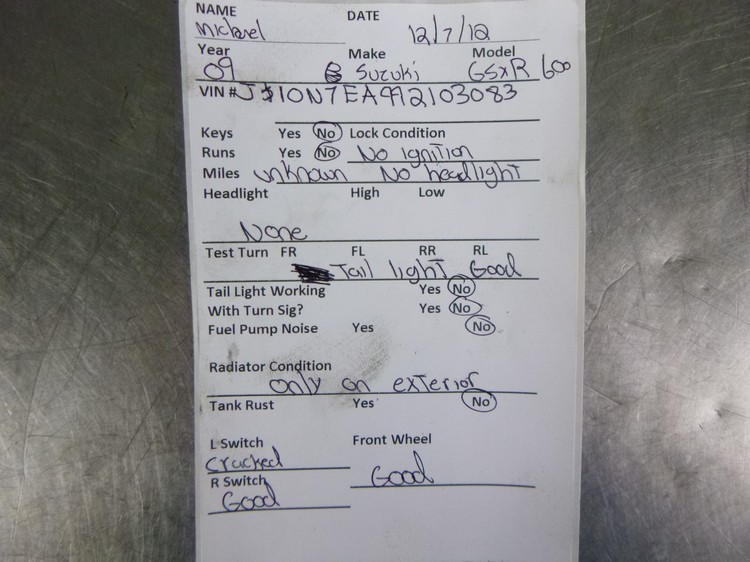 NAME DATE
Michael 12/7/12
Year Make Model
09 Suzuki GSXR 600
VIN # JS1GN7EA992103083
Keys Yes No Lock Condition
Runs Yes No No ignition
Miles unknown No headlight
Headlight High Low
None
Test Turn FR FL RR RL
Tail light Good
Tail Light Working Yes No
With Turn Sig? Yes No
Fuel Pump Noise Yes No
Radiator Condition
only on exterior
Tank Rust Yes No
L Switch Front Wheel
Cracked
R Switch Good
Good